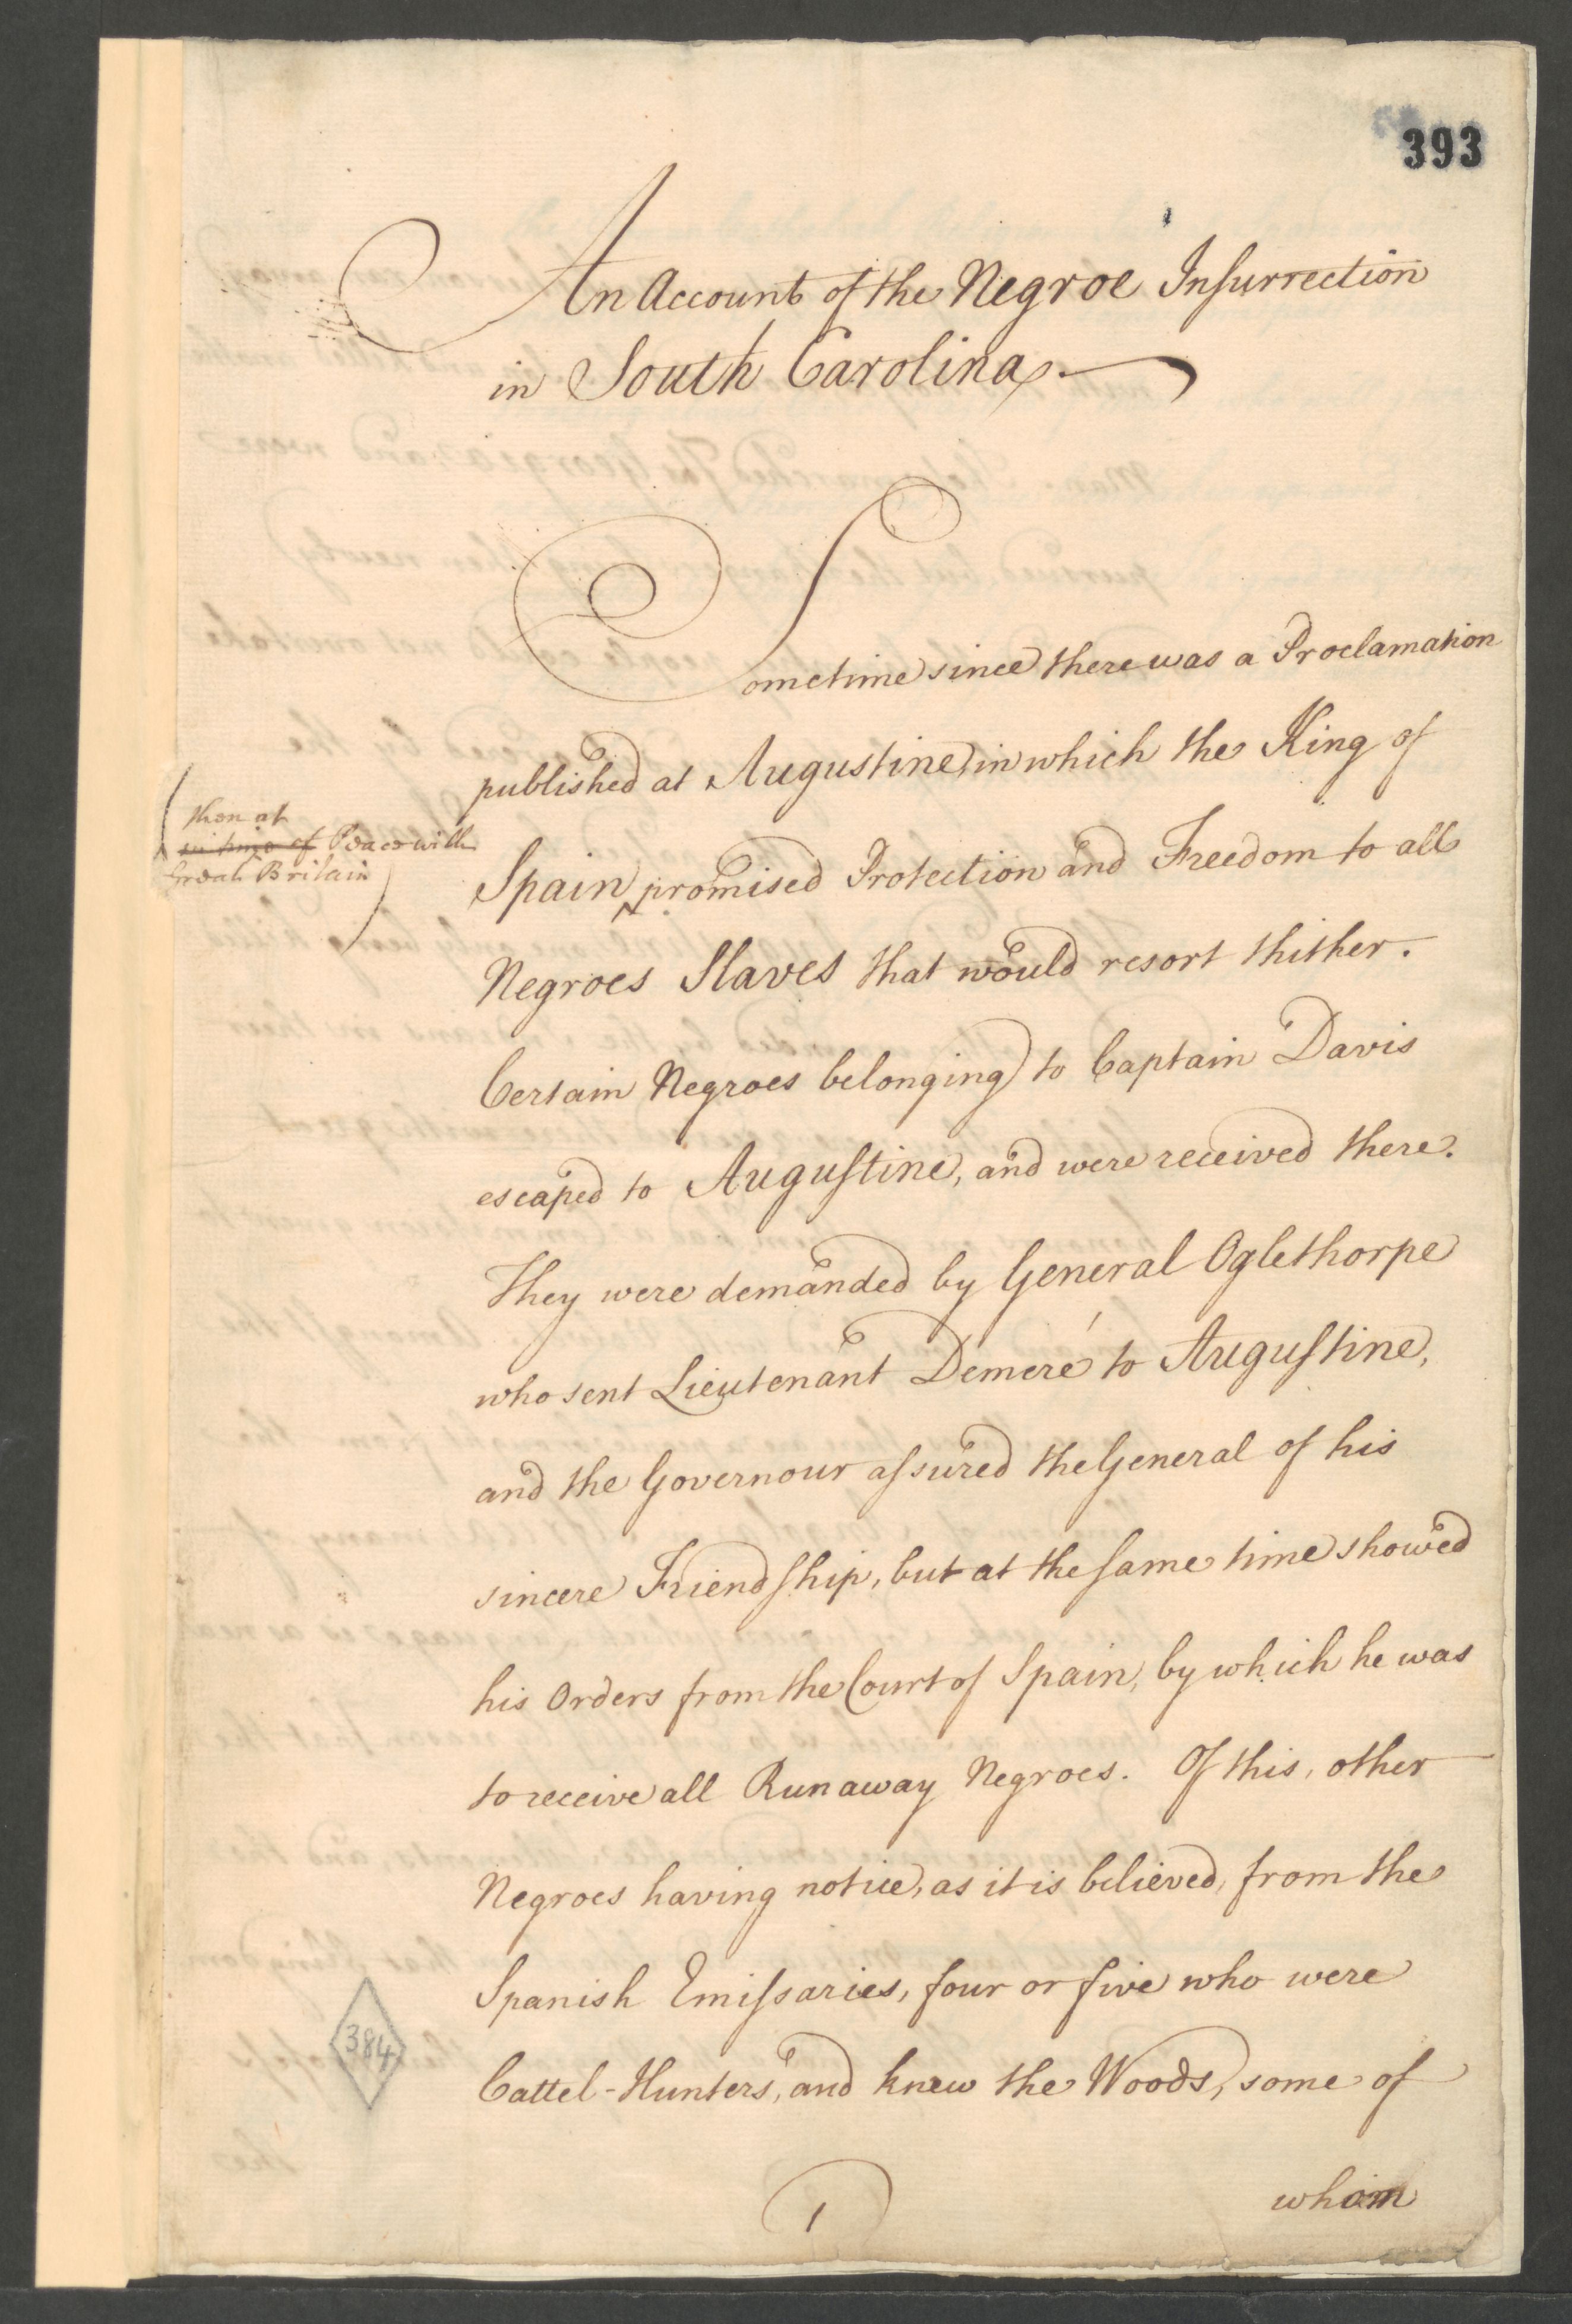 393
An Account of the Negroe Insurrection
in South Carolina.
Sometime since there was a Proclamation
published at Augustine, in which the King of
then at
in time of Peace with
Great Britain
Spain promised Protection and Freedom to all
Negroes Slaves that would resort thither.
Certain Negroes belonging to Captain Davis
escaped to Augustine, and were received there.
They were demanded by General Oglethorpe
who sent Lieutenant Demeré to Augustine,
and the Governour assured the General of his
sincere Friendship, but at the same time showed
his Orders from the Court of Spain, by which he was
to receive all Run away Negroes. Of this, other
Negroes having notice, as it is believed, from the
Spanish Emissaries, four or five who were
Cattel-Hunters, and knew the Woods, some of
384
whom
1